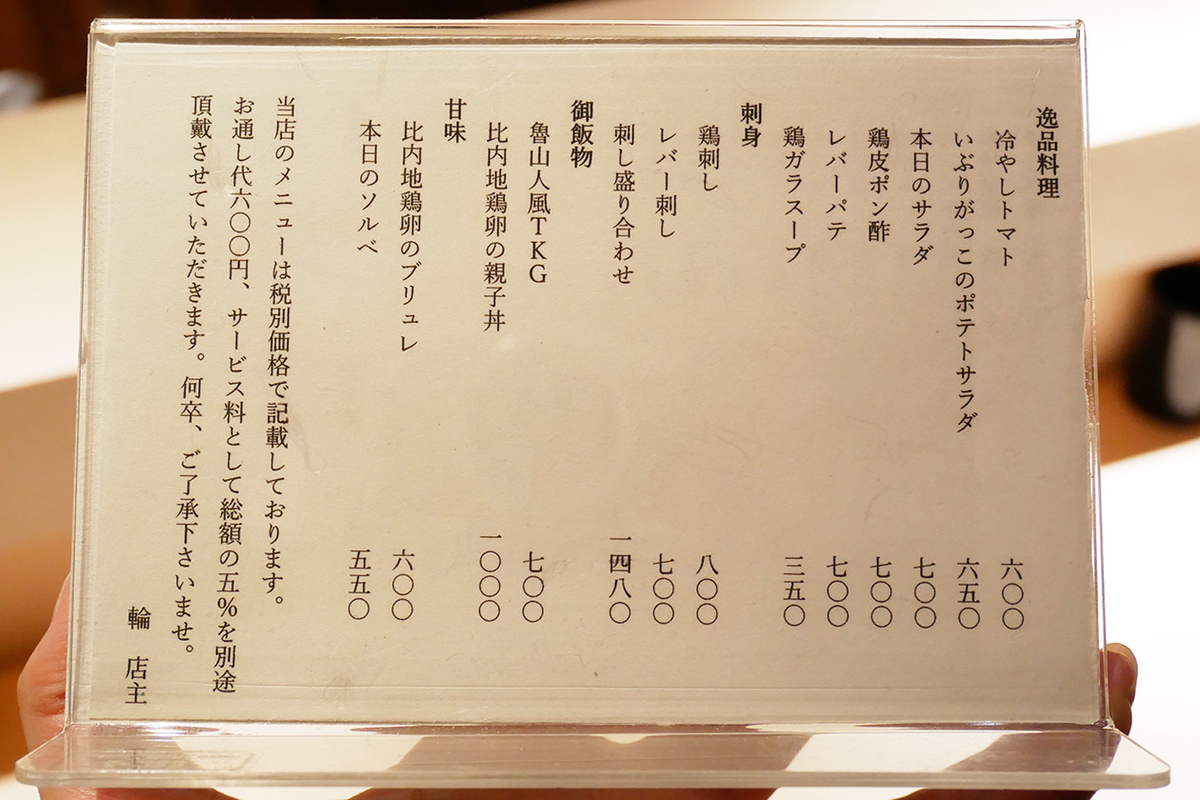 逸品料理
冷やしトマト 六〇〇
いぶりがっこのポテトサラダ 六五〇
本日のサラダ 七〇〇
鶏皮ポン酢 七〇〇
レバーパテ 七〇〇
鶏ガラスープ 三五〇
刺身
鶏刺し 八〇〇
レバー刺し 七〇〇
刺し盛り合わせ 一四八〇
御飯物
魯山人風TKG 七〇〇
比内地鶏卵の親子丼 一〇〇〇
甘味
比内地鶏卵のブリュレ 六〇〇
本日のソルベ 五五〇
当店のメニューは税別価格で記載しております。
お通し代六〇〇円、サービス料として総額の五%を別途
頂戴させていただきます。何卒、ご了承下さいませ。
輪 店主